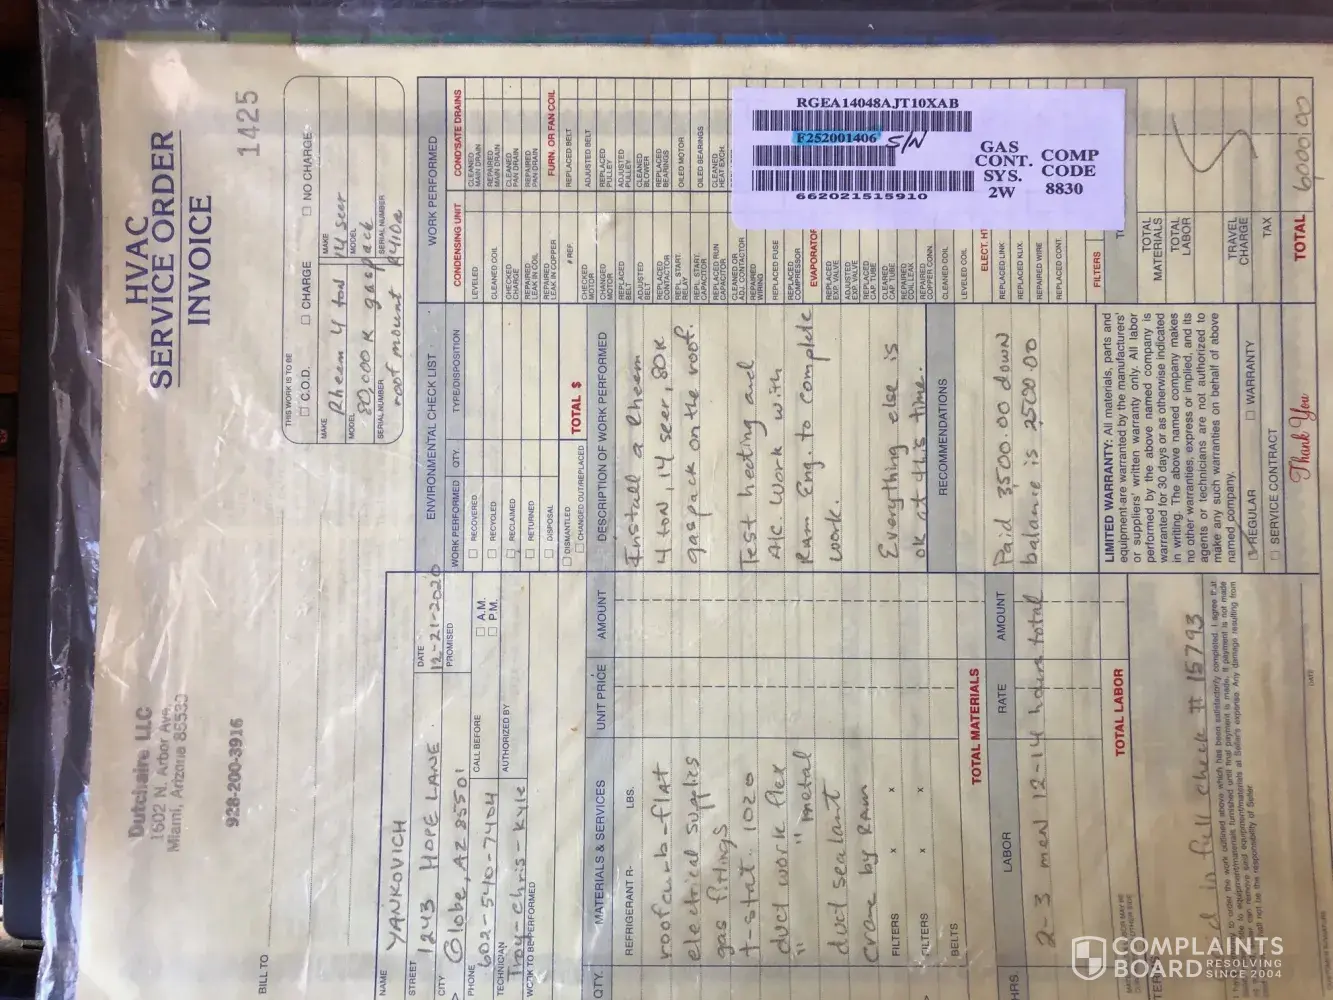 HVAC
SERVICE ORDER
INVOICE
1425
Dutchaire LLC
1602 N. Arbor Ave.
Miami, Arizona 85539
928-200-3916
BILL TO
THIS WORK IS TO BE
☐ C.O.D. ☐ CHARGE ☐ NO CHARGE
MAKE MAKE
Rheem 4 ton 14 seer
MODEL MODEL
80,000 K gaspack
SERIAL NUMBER SERIAL NUMBER
roof mount R410a
NAME
YANKOVICH
STREET
1243 HOPE LANE
CITY
Globe, AZ 85501
PHONE
602-540-7404
TECHNICIAN
Troy-Chris Kyle
WORK TO BE PERFORMED
DATE
12-21-2020
PROMISED
☐ A.M.
☐ P.M.
CALL BEFORE
AUTHORIZED BY
ENVIRONMENTAL CHECK LIST
WORK PERFORMED QTY. TYPE/DISPOSITION
☐ RECOVERED
☐ RECYCLED
☐ RECLAIMED
☐ RETURNED
☐ DISPOSAL
☐ DISMANTLED
☐ CHANGED OUT/REPLACED
TOTAL $
WORK PERFORMED
CONDENSING UNIT
LEVELED
CLEANED COIL
CHECKED CHARGE
REPAIRED LEAK IN COIL
REPAIRED LEAK IN COPPER
# REF.
CHECKED MOTOR
CHANGED MOTOR
REPLACED BELT
ADJUSTED BELT
REPLACED CONTACTOR
REPL. START RELAY
REPL. START CAPACITOR
REPLACED RUN CAPACITOR
CLEANED OR ADJ. CONTACTOR
REPAIRED WIRING
REPLACED FUSE
REPLACED COMPRESSOR
EVAPORATOR
REPLACED EXP. VALVE
ADJUSTED EXP. VALVE
REPLACED CAP. TUBE
CLEANED CAP. TUBE
REPAIRED COIL LEAK
REPAIRED COPPER CONN.
CLEANED COIL
LEVELED COIL
ELECT. HT
REPLACED LINK
REPLACED KLIX.
REPAIRED WIRE
REPLACED CONT.
FILTERS
COND'SATE DRAINS
CLEANED MAIN DRAIN
REPAIRED MAIN DRAIN
CLEANED PAN DRAIN
REPAIRED PAN DRAIN
FURN. OR FAN COIL
REPLACED BELT
ADJUSTED BELT
REPLACED PULLEY
ADJUSTED PULLEY
CLEANED BLOWER
REPLACED BEARINGS
OILED MOTOR
OILED BEARINGS
CLEANED HEAT EXCH.
RGEA14048AJT10XAB
F252001406 S/N
662021515910
GAS
CONT.
SYS.
2W
COMP
CODE
8830
QTY. MATERIALS & SERVICES UNIT PRICE AMOUNT
REFRIGERANT R- LBS.
roofcurb-flat
electrical supplies
gas fittings
t-stat. 1020
duct work flex
" " metal
duct sealant
crane by RAM
FILTERS x x
FILTERS x x
BELTS
TOTAL MATERIALS
DESCRIPTION OF WORK PERFORMED
Install a Rheem
4 ton, 14 seer, 80K
gaspack on the roof.
Test heating and
A/C. Work with
Ram Eng. to complete
work.
Everything else is
ok at this time.
RECOMMENDATIONS
Paid 3,500.00 down
balance is 2,500.00
HRS. LABOR RATE AMOUNT
2-3 men 12-14 hours total
TOTAL LABOR
LIMITED WARRANTY: All materials, parts and
equipment are warranted by the manufacturers'
or suppliers' written warranty only. All labor
performed by the above named company is
warranted for 30 days or as otherwise indicated
in writing. The above named company makes
no other warranties, express or implied, and its
agents or technicians are not authorized to
make any such warranties on behalf of above
named company.
☑ REGULAR ☐ WARRANTY
☐ SERVICE CONTRACT
Thank You
TOTAL MATERIALS
TOTAL LABOR
TRAVEL CHARGE
TAX
TOTAL 6,000.00
TERMS
in full check # 15793
DATE
COMPLAINTS
BOARD
RESOLVING
SINCE 2004